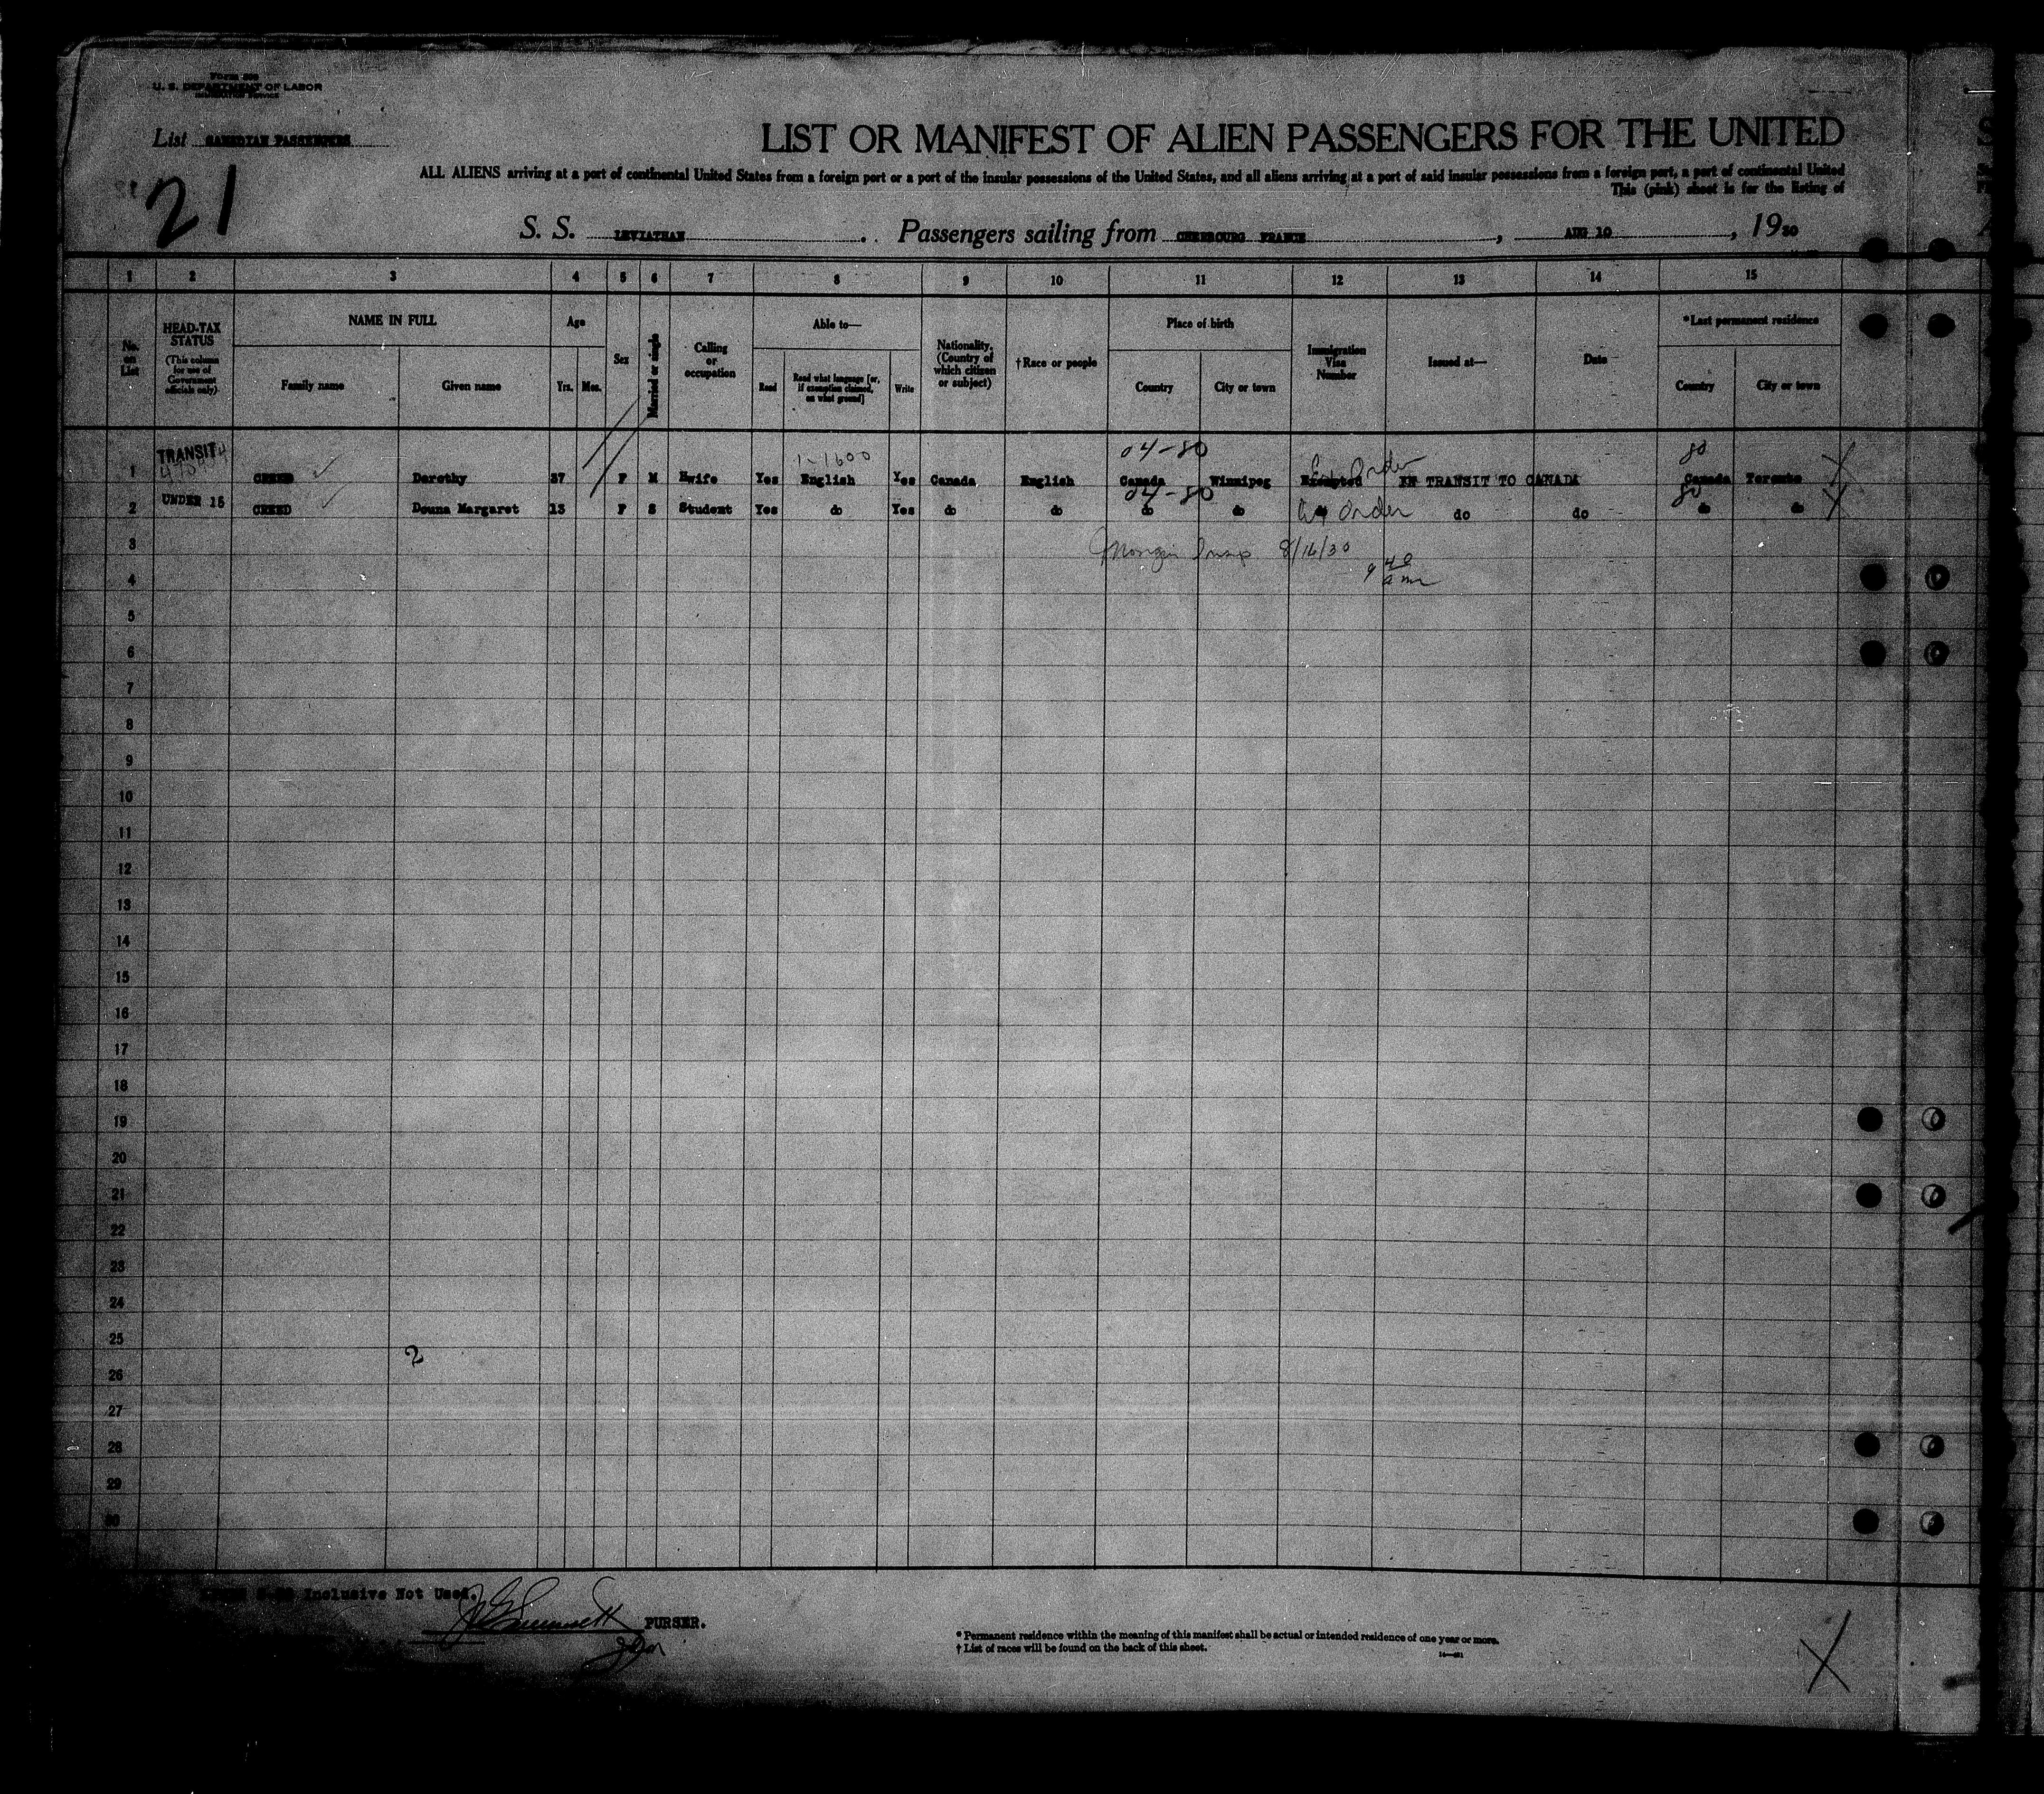 Form 500
U. S. DEPARTMENT OF LABOR
IMMIGRATION SERVICE
List CANADIAN PASSENGERS
21
LIST OR MANIFEST OF ALIEN PASSENGERS FOR THE UNITED
ALL ALIENS arriving at a port of continental United States from a foreign port or a port of the insular possessions of the United States, and all aliens arriving at a port of said insular possessions from a foreign port, a part of continental United
This (pink) sheet is for the listing of
S. S. LEVIATHAN . Passengers sailing from CHERBOURG FRANCE , AUG 10 , 1930
1 2 3 4 5 6 7 8 9 10 11 12 13 14 15
No. on List
HEAD-TAX STATUS (This column for use of Government officials only)
NAME IN FULL
Family name
Given name
Age
Yrs. Mos.
Sex
Married or single
Calling or occupation
Able to—
Read
Read what language [or, if exemption claimed, on what ground]
Write
Nationality. (Country of which citizen or subject)
†Race or people
Place of birth
Country
City or town
Immigration Visa Number
Issued at—
Date
*Last permanent residence
Country
City or town
TRANSIT 1-1600 04-80 80
1 CREED Dorothy 37 F M Hwife Yes English Yes Canada English Canada Winnipeg Exempted Ex Order IN TRANSIT TO CANADA Canada Toronto X
UNDER 16 04-80 80
2 CREED Douna Margaret 13 F S Student Yes do Yes do do do do Ex Order do do do do X
3 Insp 8/16/30
4 9 40 am
5
6
7
8
9
10
11
12
13
14
15
16
17
18
19
20
21
22
23
24
25
2
26
27
28
29
30
Inclusive Not Used.
PURSER.
*Permanent residence within the meaning of this manifest shall be actual or intended residence of one year or more.
†List of races will be found on the back of this sheet.
X